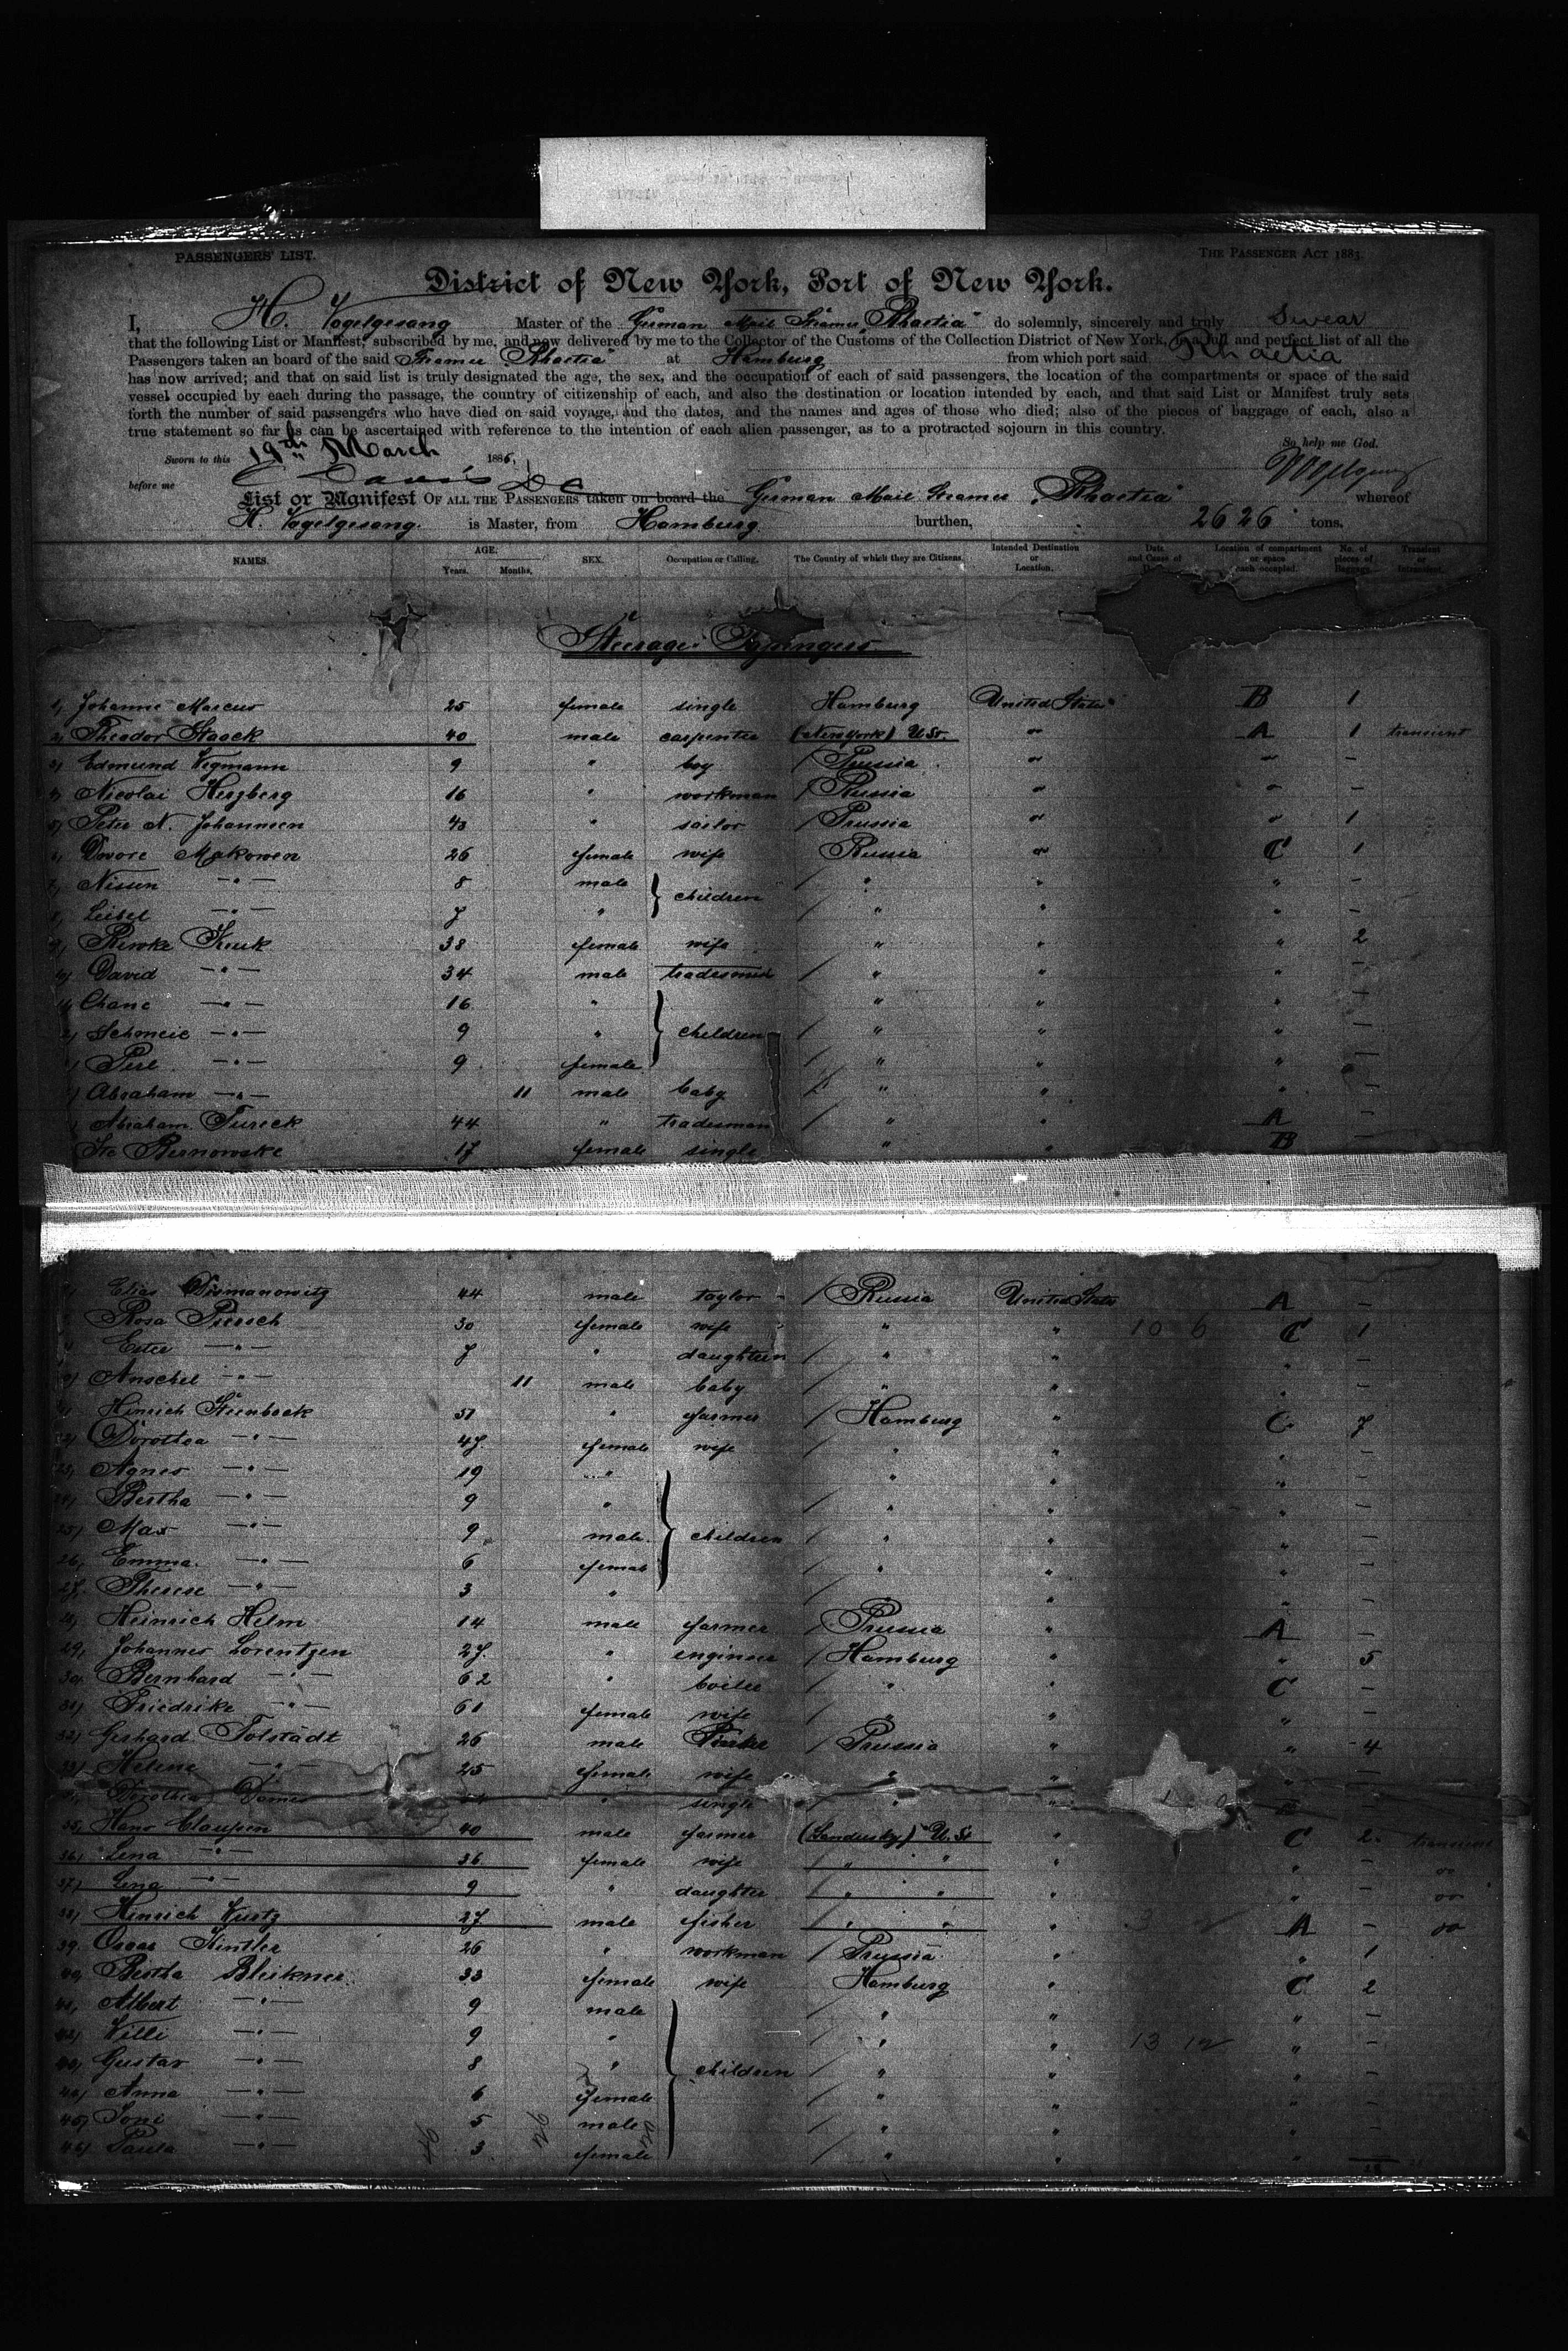 PASSENGERS' LIST. THE PASSENGER ACT 1883.
District of New York, Port of New York.
I, H. Vogelgesang Master of the German Mail Steamer "Rhaetia" do solemnly, sincerely and truly swear
that the following List or Manifest, subscribed by me, and now delivered by me to the Collector of the Customs of the Collection District of New York, is a full and perfect list of all the
Passengers taken on board of the said Steamer "Rhaetia" at Hamburg from which port said Rhaetia
has now arrived; and that on said list is truly designated the age, the sex, and the occupation of each of said passengers, the location of the compartments or space of the said
vessel occupied by each during the passage, the country of citizenship of each, and also the destination or location intended by each, and that said List or Manifest truly sets
forth the number of said passengers who have died on said voyage, and the dates, and the names and ages of those who died; also of the pieces of baggage of each, also a
true statement so far as can be ascertained with reference to the intention of each alien passenger, as to a protracted sojourn in this country.
So help me God.
Sworn to this 19th March 188
before me Davis DC Vogelgesang
List or Manifest OF ALL THE PASSENGERS taken on board the German Mail Steamer "Rhaetia" whereof
H. Vogelgesang. is Master, from Hamburg burthen, 2626 tons.
NAMES. AGE. Years. Months. SEX. Occupation or Calling. The Country of which they are Citizens. Intended Destination or Location. Date and Cause of Location of compartment or space each occupied. No. of pieces of Baggage. Transient or
Steerage Passengers
1, Johanne Marcus 25 female single Hamburg United States B 1
2, Theodor Staack 40 male carpenter (New York) U.St. " A 1 transient
3, Edmund Wegmann 9 " boy / Prussia " " -
4, Nicolai Herzberg 16 " workman / Russia " " -
5, Peter N. Johannsen 43 " sailor / Prussia " " 1
6, Dwore Makowen 26 female wife Russia " C 1
7, Nissen -"- 8 male children / " " " -
8, Leibel -"- 7 " / " " " -
9, Riwke 38 female wife " " " 2
10, David -"- 34 male tradesman / " " " -
11, Chane -"- 16 " children " " " -
12, Schmeie -"- 9 " / " " " -
Perl -"- 9 female / " " " -
Abraham -"- 11 male baby " " " -
Abraham Tureck 44 " tradesman / " " A -
Bernowske 17 female single " " B -
Elias 44 male taylor / Russia United States A -
Rosa Piersch 30 female wife " " 10 6 C 1
Ester -"- 7 " daughter / " " " -
Anschel -"- 11 male baby / " " " -
Hinrich Steenbock 51 " farmer / Hamburg " C 7
22, Dorothea -"- 47 female wife / " " " -
23, Agnes -"- 19 " children " " " -
24, Bertha -"- 9 " / " " " -
25, Max -"- 9 male / " " " -
26, Emma -"- 6 female / " " " -
27, Therese -"- 3 " / " " " -
28, Heinrich Helm 14 male farmer / Prussia " A -
29, Johannes Lorentzen 27 " engineer / Hamburg " " 5
30, Bernhard -"- 62 " / " " C -
31, Friedrike -"- 61 female wife " " " -
32, Gerhard Tolstädt 26 male / Prussia " " 4
33, Helene -"- 25 female wife " " " -
34, Dorothea " single / " " -
35, Hans Claussen 40 male farmer (Sandusky) U.St " C 2 transient
36, Lena -"- 36 female wife " " " " -
37, Lena -"- 9 " daughter " " " " -
38, Hinrich Wurtz 27 male fisher " " " A -
39, Oscar Kintler 26 " workman / Prussia " " 1
40, Bertha Bleikner 33 female wife Hamburg " C 2
41, Albert -"- 9 male children / " " " -
42, Willi -"- 9 " / " " 13 12 " -
43, Gustav -"- 8 " / " " " -
44, Anna -"- 6 female / " " " -
45, Toni -"- 5 male / " " " -
46, Paula -"- 3 female / " " "